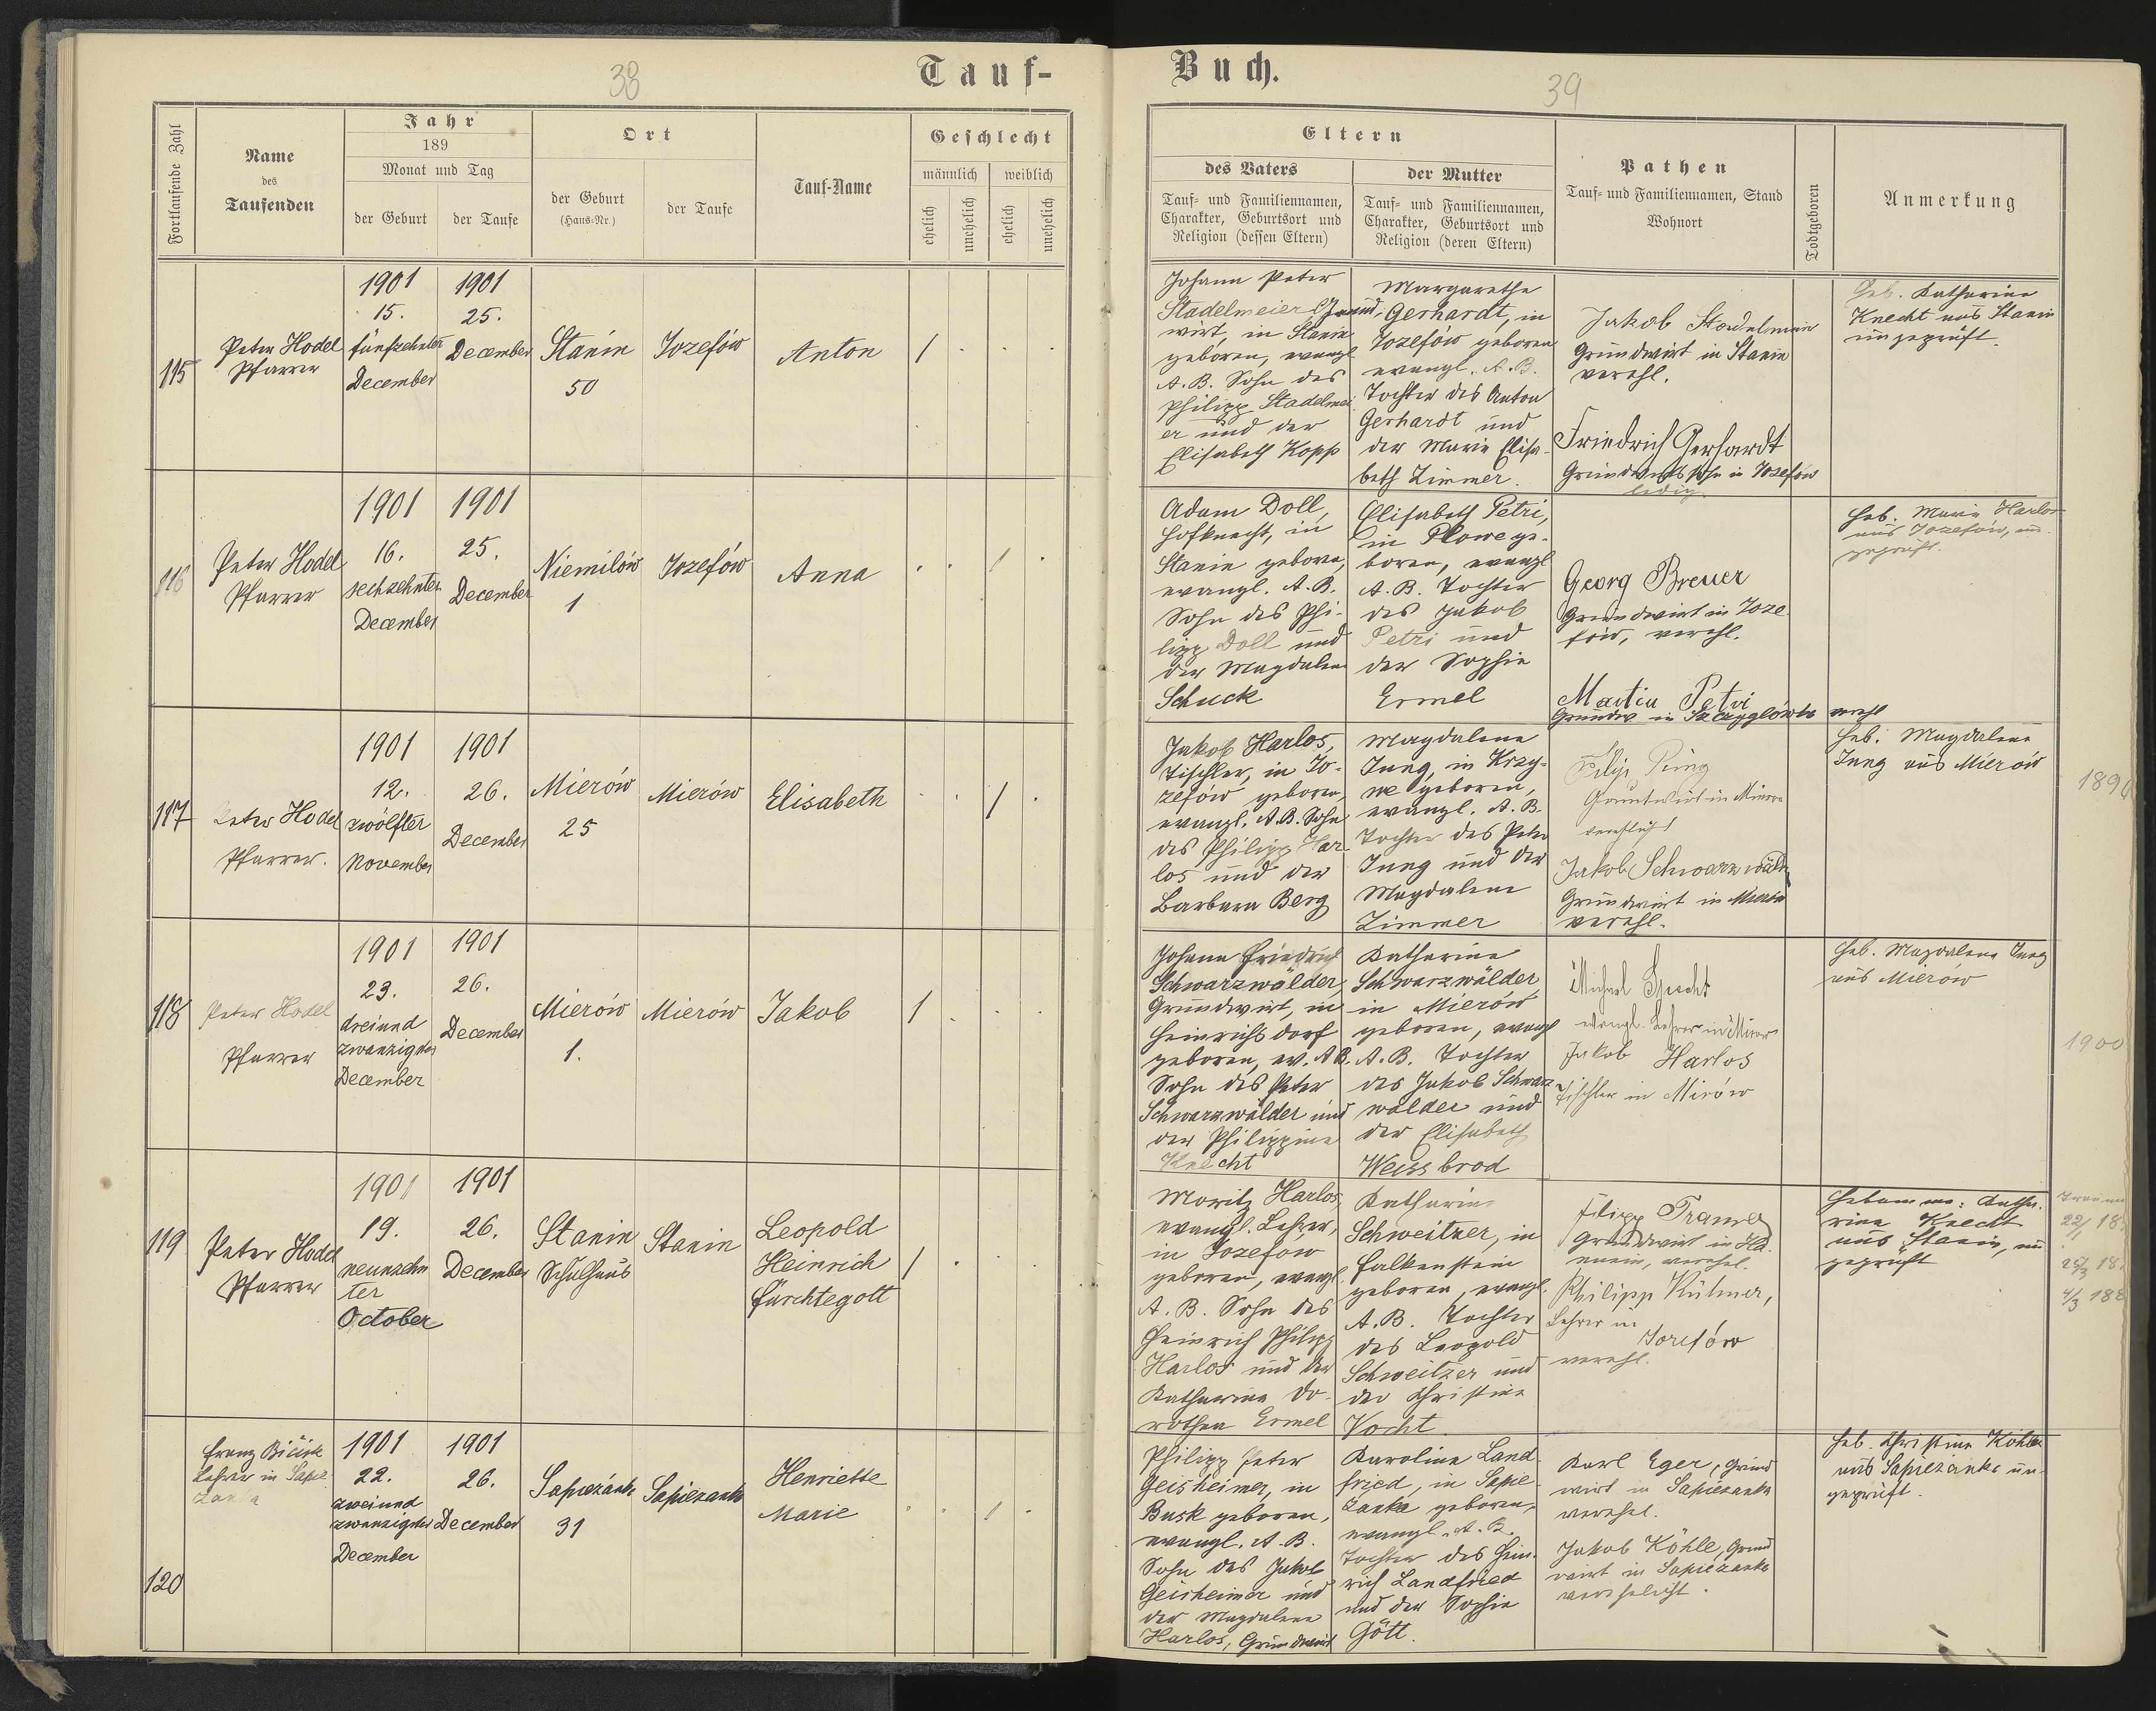 38
Tauf-
Fortlaufende Zahl
Name
des
Taufenden
Jahr
189
Monat und Tag
der Geburt
der Taufe
Ort
der Geburt
(Haus-Nr.)
der Taufe
Tauf-Name
Geschlecht
männlich
weiblich
ehelich
unehelich
ehelich
unehelich
115
Peter Hodel
Pfarrer
1901
15.
fünfzehnter
December
1901
25.
December
Stanin
50
Jozefów
Anton
1
116
Peter Hodel
Pfarrer
1901
16.
sechzehnter
December
1901
25.
December
Niemilów
1
Jozefów
Anna
1
117
Peter Hodel
Pfarrer.
1901
12.
zwölfter
November
1901
26.
December
Mierów
25
Mierów
Elisabeth
1
118
Peter Hodel
Pfarrer
1901
23.
dreiund
zwanzigster
December
1901
26.
December
Mierów
1.
Mierów
Jakob
1
119
Peter Hodel
Pfarrer
1901
19.
neunzehn
ter
October
1901
26.
December
Stanin
Schulhaus
Stanin
Leopold
Heinrich
Fürchtegott
1
120
Franz
Lehrer in Sapie
zanka
1901
22.
zweiund
zwanzigster
December
1901
26.
December
Sapiezanka
31
Sapiezanka
Henriette
Marie
1
Buch.
39
Eltern
des Vaters
Tauf- und Familiennamen,
Charakter, Geburtsort und
Religion (dessen Eltern)
der Mutter
Tauf- und Familiennamen,
Charakter, Geburtsort und
Religion (deren Eltern)
Pathen
Tauf- und Familiennamen, Stand
Wohnort
Todtgeboren
Anmerkung
Johann Peter
Stadelmeier, Grund-
wirt, in Stanin
geboren, evangl
A. B. Sohn des
Philipp Stadelmei
er und der
Elisabeth Kopp
Margarethe
Gerhardt, in
Jozefów geboren
evangl. A. B.
Tochter des Anton
Gerhardt und
der Marie Elisa-
beth Zimmer.
Jakob Stadelmeier
Grundwirt in Stanin
verehl.
Friedrich Gerhardt
Grundwirts Sohn in Jozefów
ledig
Heb. Katharina
Knecht aus Stanin
ungeprüft.
Adam Doll,
Hofknecht, in
Stanin geboren,
evangl. A. B.
Sohn des Phi-
lipp Doll und
der Magdalena
Schuck
Elisabeth Petri,
in Plowe ge-
boren, evangl
A. B. Tochter
des Jakob
Petri und
der Sophie
Ermel
Georg Breuer
Grundwirt in Joze
fów, verehl.
Martin Petri
Grundw in verehl
Heb. Marie Harlos
aus Jozefów, un-
geprüft.
Jakob Harlos,
Tischler, in Jo-
zefów geboren,
evangl. A. B. Sohn
des Philipp Har-
los und der
Barbara Berg
Magdalena
Jung, in Krzy-
we geboren,
evangl. A. B.
Tochter des Peter
Jung und der
Magdalena
Zimmer
Filip Jung
Grundwirt in Mierow
verehlicht
Jakob Schwarzwälder
Grundwirt in Mierów
verehl.
Heb. Magdalena
Jung aus Mierów
1890
Johann Friedrich
Schwarzwälder,
Grundwirt, in
Heinrichsdorf
geboren, ev. A. B.
Sohn des Peter
Schwarzwälder und
der Philippine
Knecht
Katharina
Schwarzwälder,
in Mierów
geboren, evangl
A. B. Tochter
des Jakob Schwarz-
wälder und
der Elisabeth
Weissbrod
Michael Specht
evangl. Lehrer in Mierow
Jakob Harlos
Tischler in Mirów
Heb. Magdalena Jung
aus Mierów
1900
Moritz Harlos,
evangl. Lehrer,
in Jozefow
geboren, evangl
A. B. Sohn des
Heinrich Philipp
Harlos und der
Katharina Do-
rothea Ermel
Katharina
Schweitzer, in
Falkenstein
geboren, evangl.
A. B. Tochter
des Leopold
Schweitzer und
der Christine
Vocht
Filipp
Grundwirt in
verehel.
Philipp
Lehrer in
Jozefów
verehl.
Hebamme: Katha-
rina Knecht
aus Stanin, un
geprüft
22/1 18
25/3 18
4/3 188
Philipp Peter
Geisheimer, in
Busk geboren,
evangl. A. B.
Sohn des Jakob
Geisheimer und
der Magdalena
Harlos, Grundwirt
Karolina Land
fried, in Sapie-
zanka geboren,
evangl. A. B.
Tochter des Hein-
rich Landfried
und der Sophie
Gött.
Karl Eger, Grund
wirt in Sapiezanka
verehel.
Jakob Köhle, Grund
wirt in Sapiezanka
verehelicht.
Heb. Christine Köhle
aus Sapiezanka un-
geprüft.